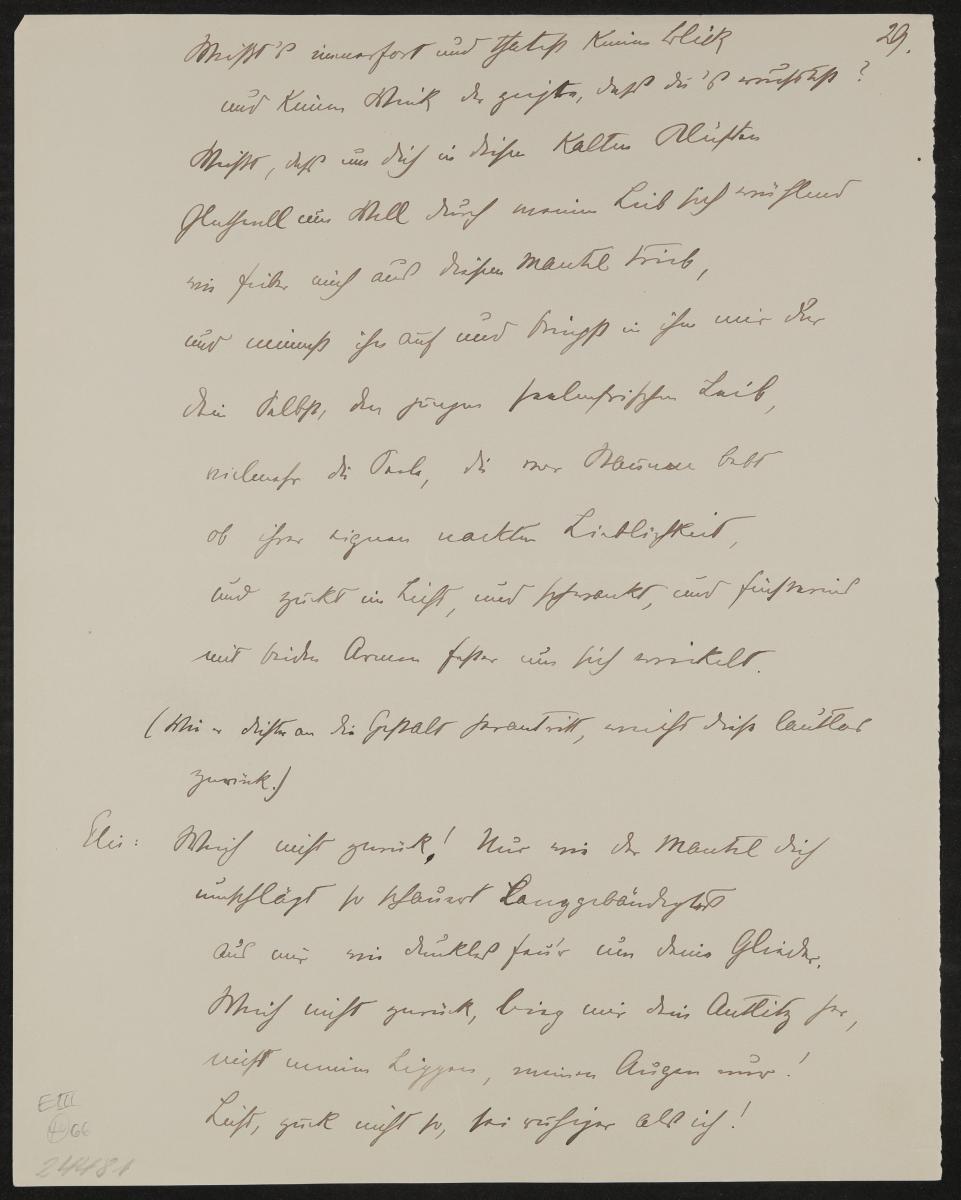 29.
Weißt's immerfort und thatest keinen Blick
und keinen Wink der zeigte, daß du's wußtest?
Weißt, daß um dich in diesen kalten Klüften
Gluthwell um Well durch meinen Leib sich wühlend
wie Fieber mich aus diesem Mantel trieb,
und nimmst ihn auf und bringst in ihm mir dar
dein Selbst, den jungen seelenfrischen Leib,
vielmehr die Seele, die vor Staunen bebt
ob ihrer eignen nackten Lieblichkeit,
und zückt im Licht, und schwankt, und
mit beiden Armen fester um sich wickelt.
(Wie er dichter an die Gestalt herantritt, weicht diese lautlos
zurück.)
Elis: Weich nicht zurück! Nur wie der Mantel dich
umschlägt so schauert Langgebändigtes
aus mir wie dunkles Feu'r um deine Glieder.
Weich nicht zurück, bieg mir dein Antlitz her,
nicht meinen Lippen, meinen Augen nur!
Licht, zuck nicht so, sei ruhiger als ich!
E III
66